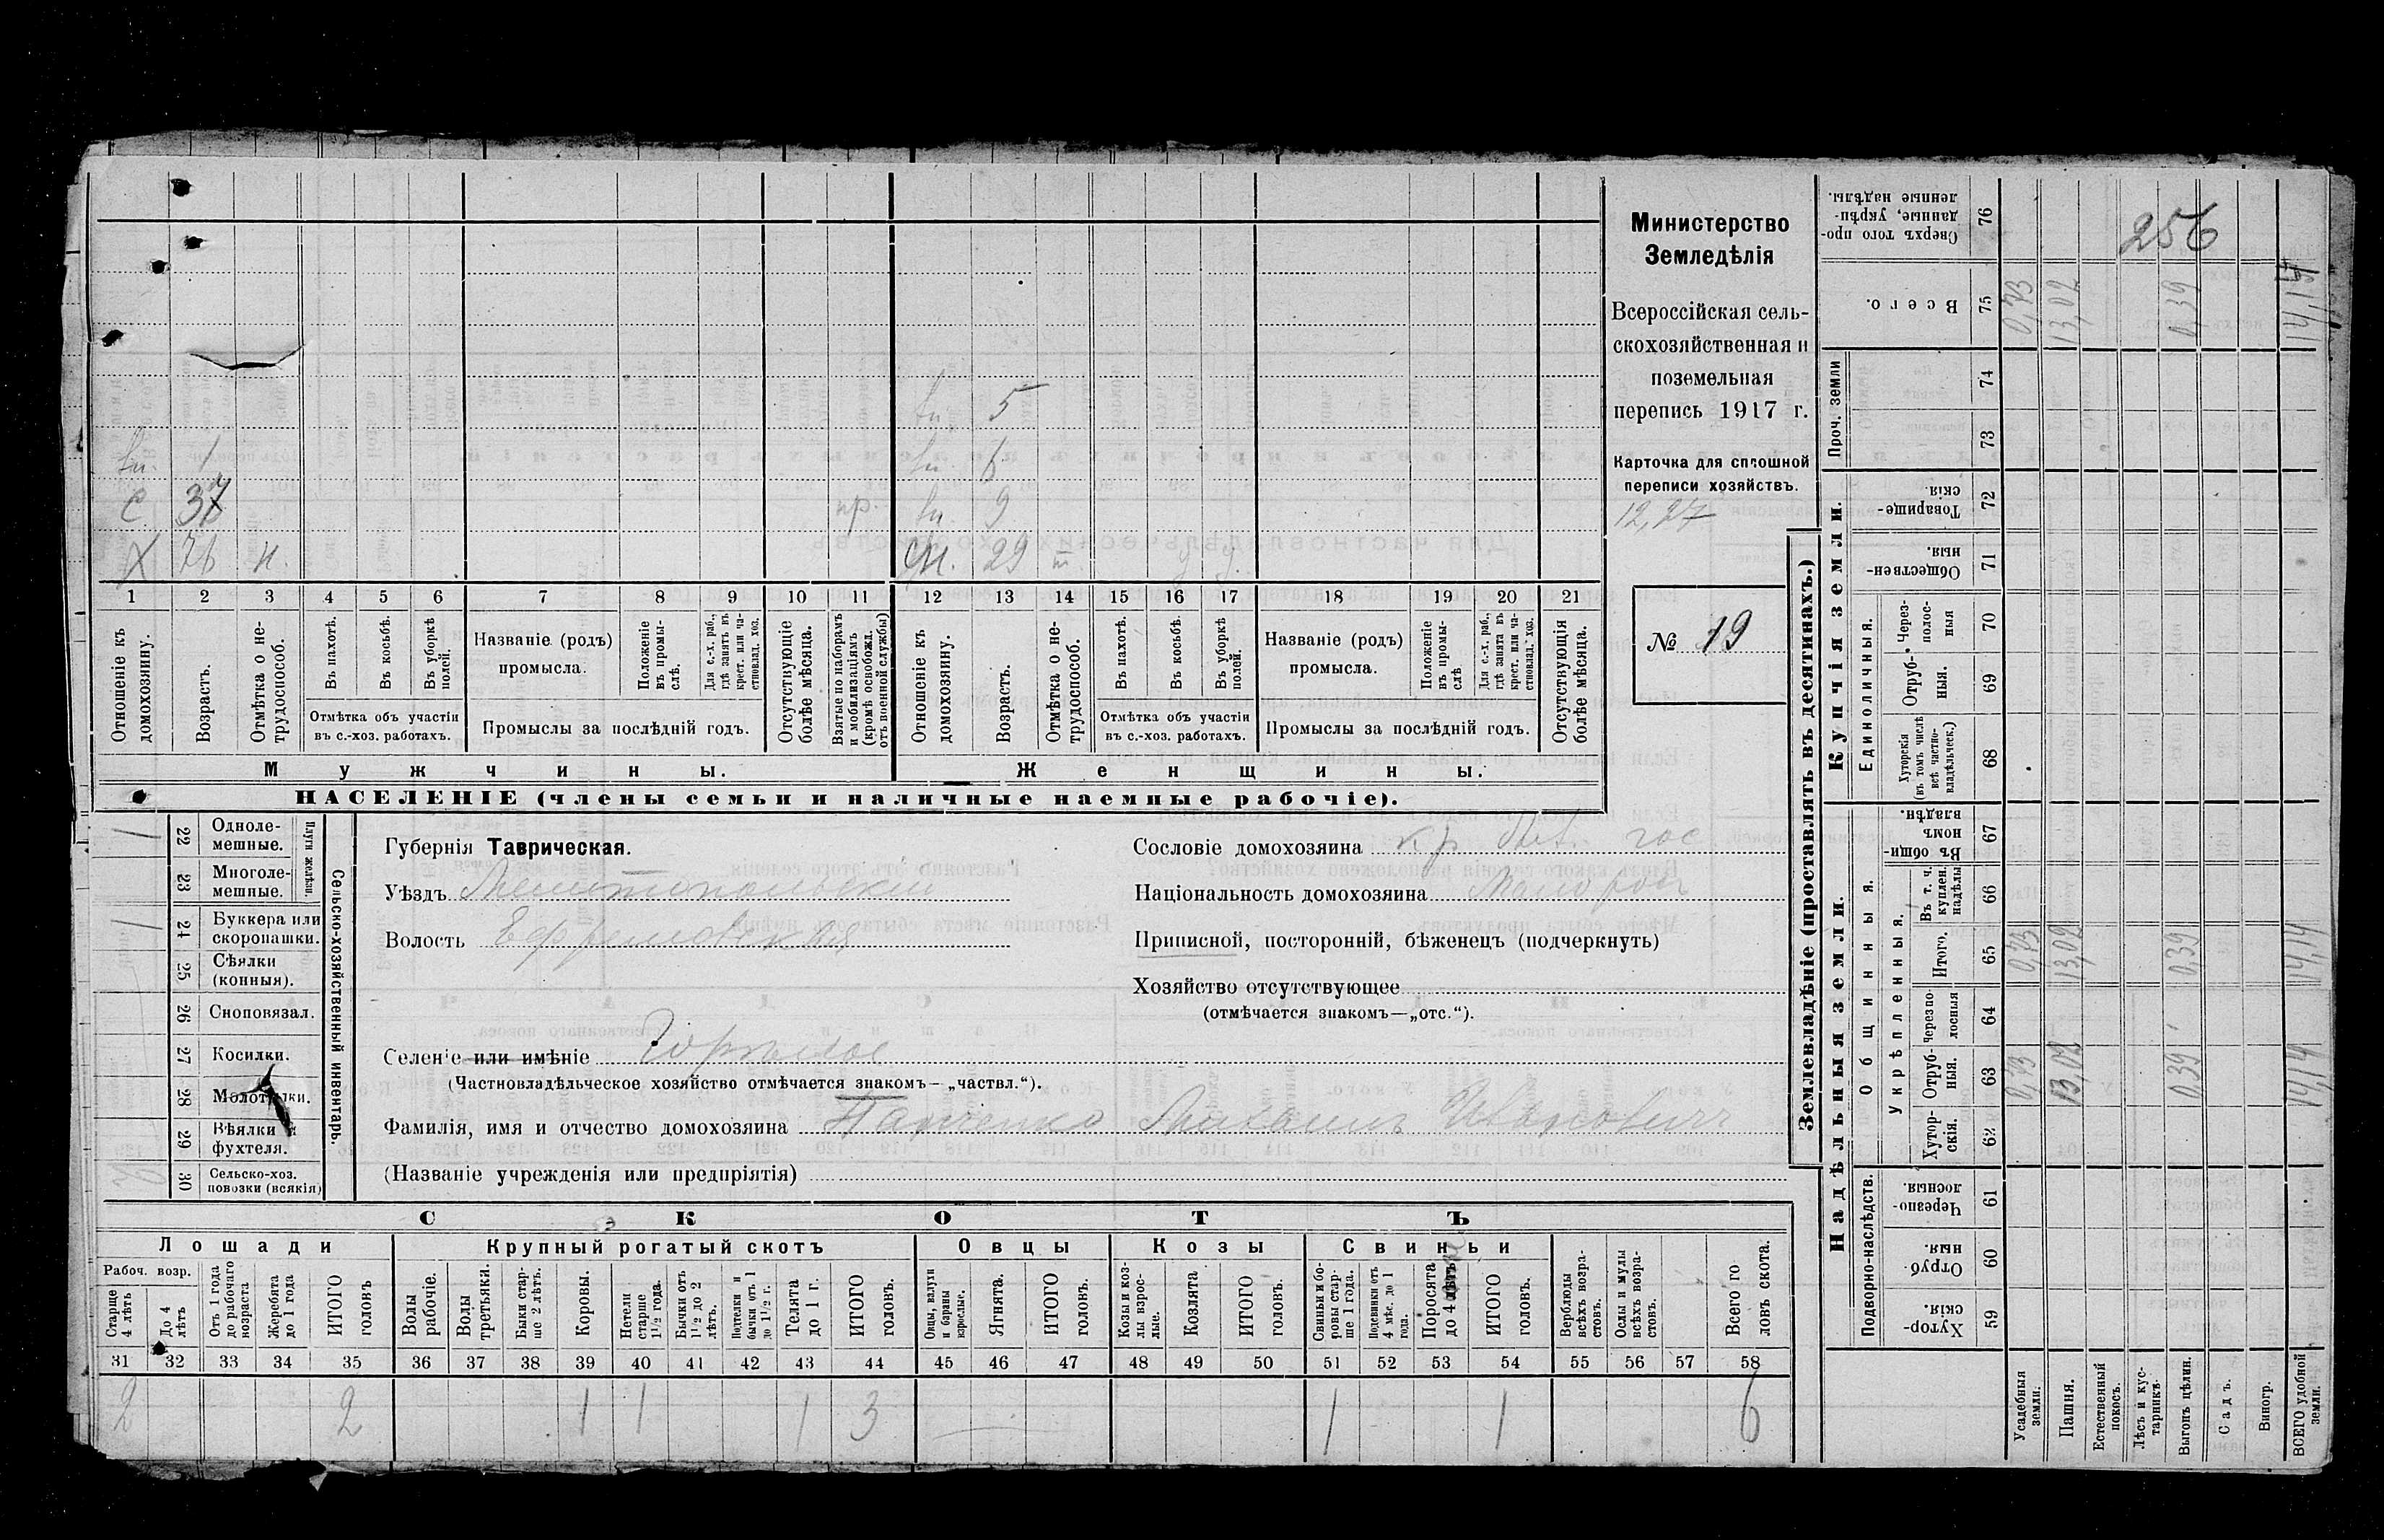 Министерство
Земледѣлія
Всероссійская сель-
скохозяйственная и
поземельная
перепись 1917 г.
Карточка для сплошной
переписи хозяйствъ.
12,27
№ 19
5
вн. 1 вн. 6
с 37 пр. вн. 9
х 76 н. 29 п
1 2 3 4 5 6 7 8 9 10 11 12 13 14 15 16 17 18 19 20 21
Отношеніе къ домохозяину.
Возрастъ.
Отмѣтка о не-трудоспособ.
Въ пахотѣ.
Въ косьбѣ.
Въ уборкѣ полей.
Отмѣтка объ участіи
въ с.-хоз. работахъ.
Названіе (родъ)
промысла.
Положеніе въ промы-слѣ.
Для с.-х. раб., гдѣ занятъ въ крест. или ча-стновлад. хоз.
Промыслы за послѣдній годъ.
Отсутствующіе болѣе мѣсяца.
Взятые по наборамъ и мобилизаціямъ (кромѣ освобожд. отъ военной службы)
Отношеніе къ домохозяину.
Возрастъ.
Отмѣтка о не-трудоспособ.
Въ пахотѣ.
Въ косьбѣ.
Въ уборкѣ полей.
Отмѣтка объ участіи
въ с.-хоз. работахъ.
Названіе (родъ)
промысла.
Положеніе въ промы-слѣ
Для с.-х. раб., гдѣ занята въ крест. или ча-стновлад. хоз.
Промыслы за послѣдній годъ.
Отсутствующія болѣе мѣсяца.
Мужчины. Женщины.
НАСЕЛЕНІЕ (члены семьи и наличные наемные рабочіе).
Сельско-хозяйственный инвентарь.
Плуги желѣзн.
1 22 Одноле-мешные.
23 Многоле-мешные.
1 24 Буккера или скоропашки.
25 Сѣялки (конныя).
26 Сноповязал.
27 Косилки.
28 Молотилки.
29 Вѣялки и фухтеля.
30 Сельско-хоз. повозки (всякія)
Губернія Таврическая.
Уѣздъ Мелитопольскій
Волость Ефремовская
Селеніе или имѣніе Горѣлое
(Частновладѣльческое хозяйство отмѣчается знакомъ—„частвл.“).
Фамилія, имя и отчество домохозяина Михаилъ Ивановичъ
(Названіе учрежденія или предпріятія)
Сословіе домохозяина кр. быв. гос
Національность домохозяина Малорос
Приписной, посторонній, бѣженецъ (подчеркнуть)
Хозяйство отсутствующее
(отмѣчается знакомъ—„отс.“).
СКОТЪ
Лошади Крупный рогатый скотъ Овцы Козы Свиньи
Рабоч. возр.
Старше 4 лѣтъ
До 4 лѣтъ
Отъ 1 года до рабочаго возраста
Жеребята до 1 года
ИТОГО головъ
Волы рабочіе.
Волы третьяки.
Быки стар-ше 2 лѣтъ.
Коровы.
Нетели старше 1½ года.
Бычки отъ 1½ до 2 лѣтъ.
Подтелки и бычки отъ 1 до 1½ г.
Телята до 1 г.
ИТОГО головъ.
Овцы, валухи и бараны взрослые.
Ягнята.
ИТОГО головъ.
Козы и коз-лы взрос-лые.
Козлята
ИТОГО головъ.
Свиньи и бо-ровы стар-ше 1 года.
Подсвинки отъ 4 мѣс. до 1 года.
Поросята до 4
ИТОГО головъ.
Верблюды всѣхъ возра-стовъ.
Ослы и мулы всѣхъ возра-стовъ.
Всего го ловъ скота.
31 32 33 34 35 36 37 38 39 40 41 42 43 44 45 46 47 48 49 50 51 52 53 54 55 56 57 58
2 2 1 1 1 3 1 1 6
Землевладѣніе (проставлять въ десятинахъ.)
Купчія земли.
Надѣльныя земли.
Сверхъ того про-данные, укрѣп-ленные надѣлы. 76
256
Всего. 75 0,73 13,02 0,39 14,14
Проч. земли 74
73
Товарище-скія. 72
Обществен-ныя. 71
Единоличныя.
Черезполос-ныя 70
Отруб-ныя. 69
Хуторскія (въ томъ числѣ всѣ частно-владѣльческ.) 68
Общинныя.
Въ общи номъ владѣн. 67
Укрѣпленныя.
Въ т. ч. куплен. надѣлы 66
Итого. 65 0,73 13,02 0,39 14,14
Черезпо лосныя 64
Отруб-ныя. 63 0,73 13,02 0,39 14,14
Хутор-скія. 62
Подворно-наслѣдств.
Черезпо-лосныя. 61
Отруб-ныя. 60
Хутор-скія. 59
Усадебныя земли.
Пашня.
Естественный покосъ.
Лѣсъ и кус-тарникъ.
Выгонъ цѣлин.
Садъ.
Виногр.
ВСЕГО удобной земли.